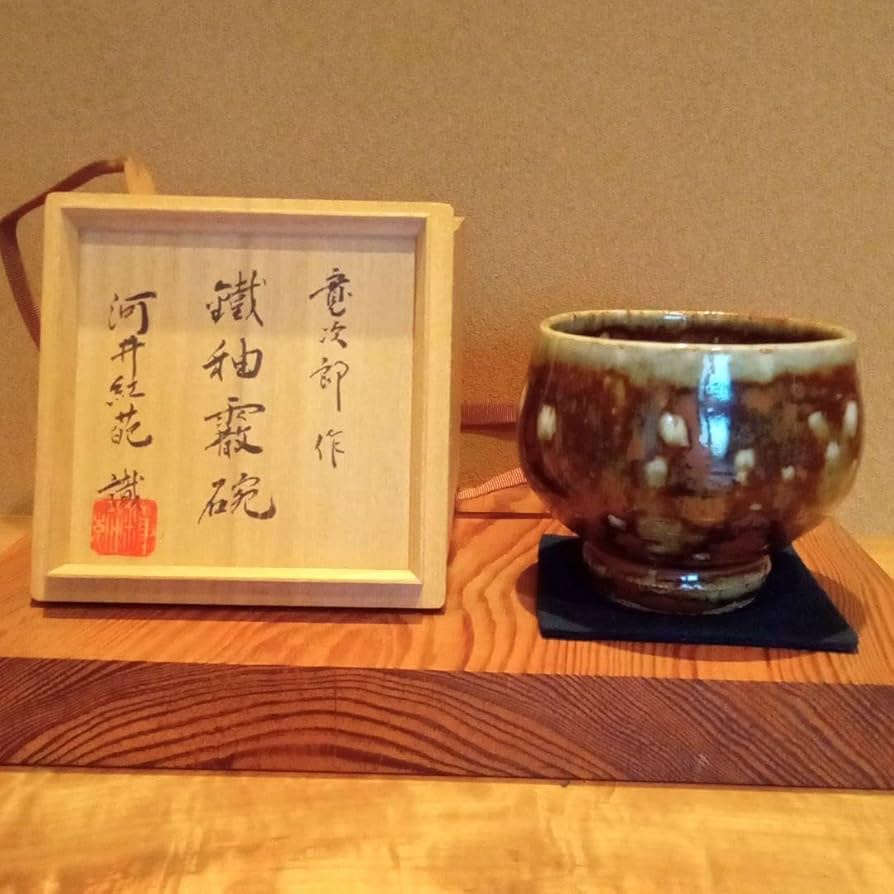 寛次郎作
鐵釉霰碗
河井紅葩 識